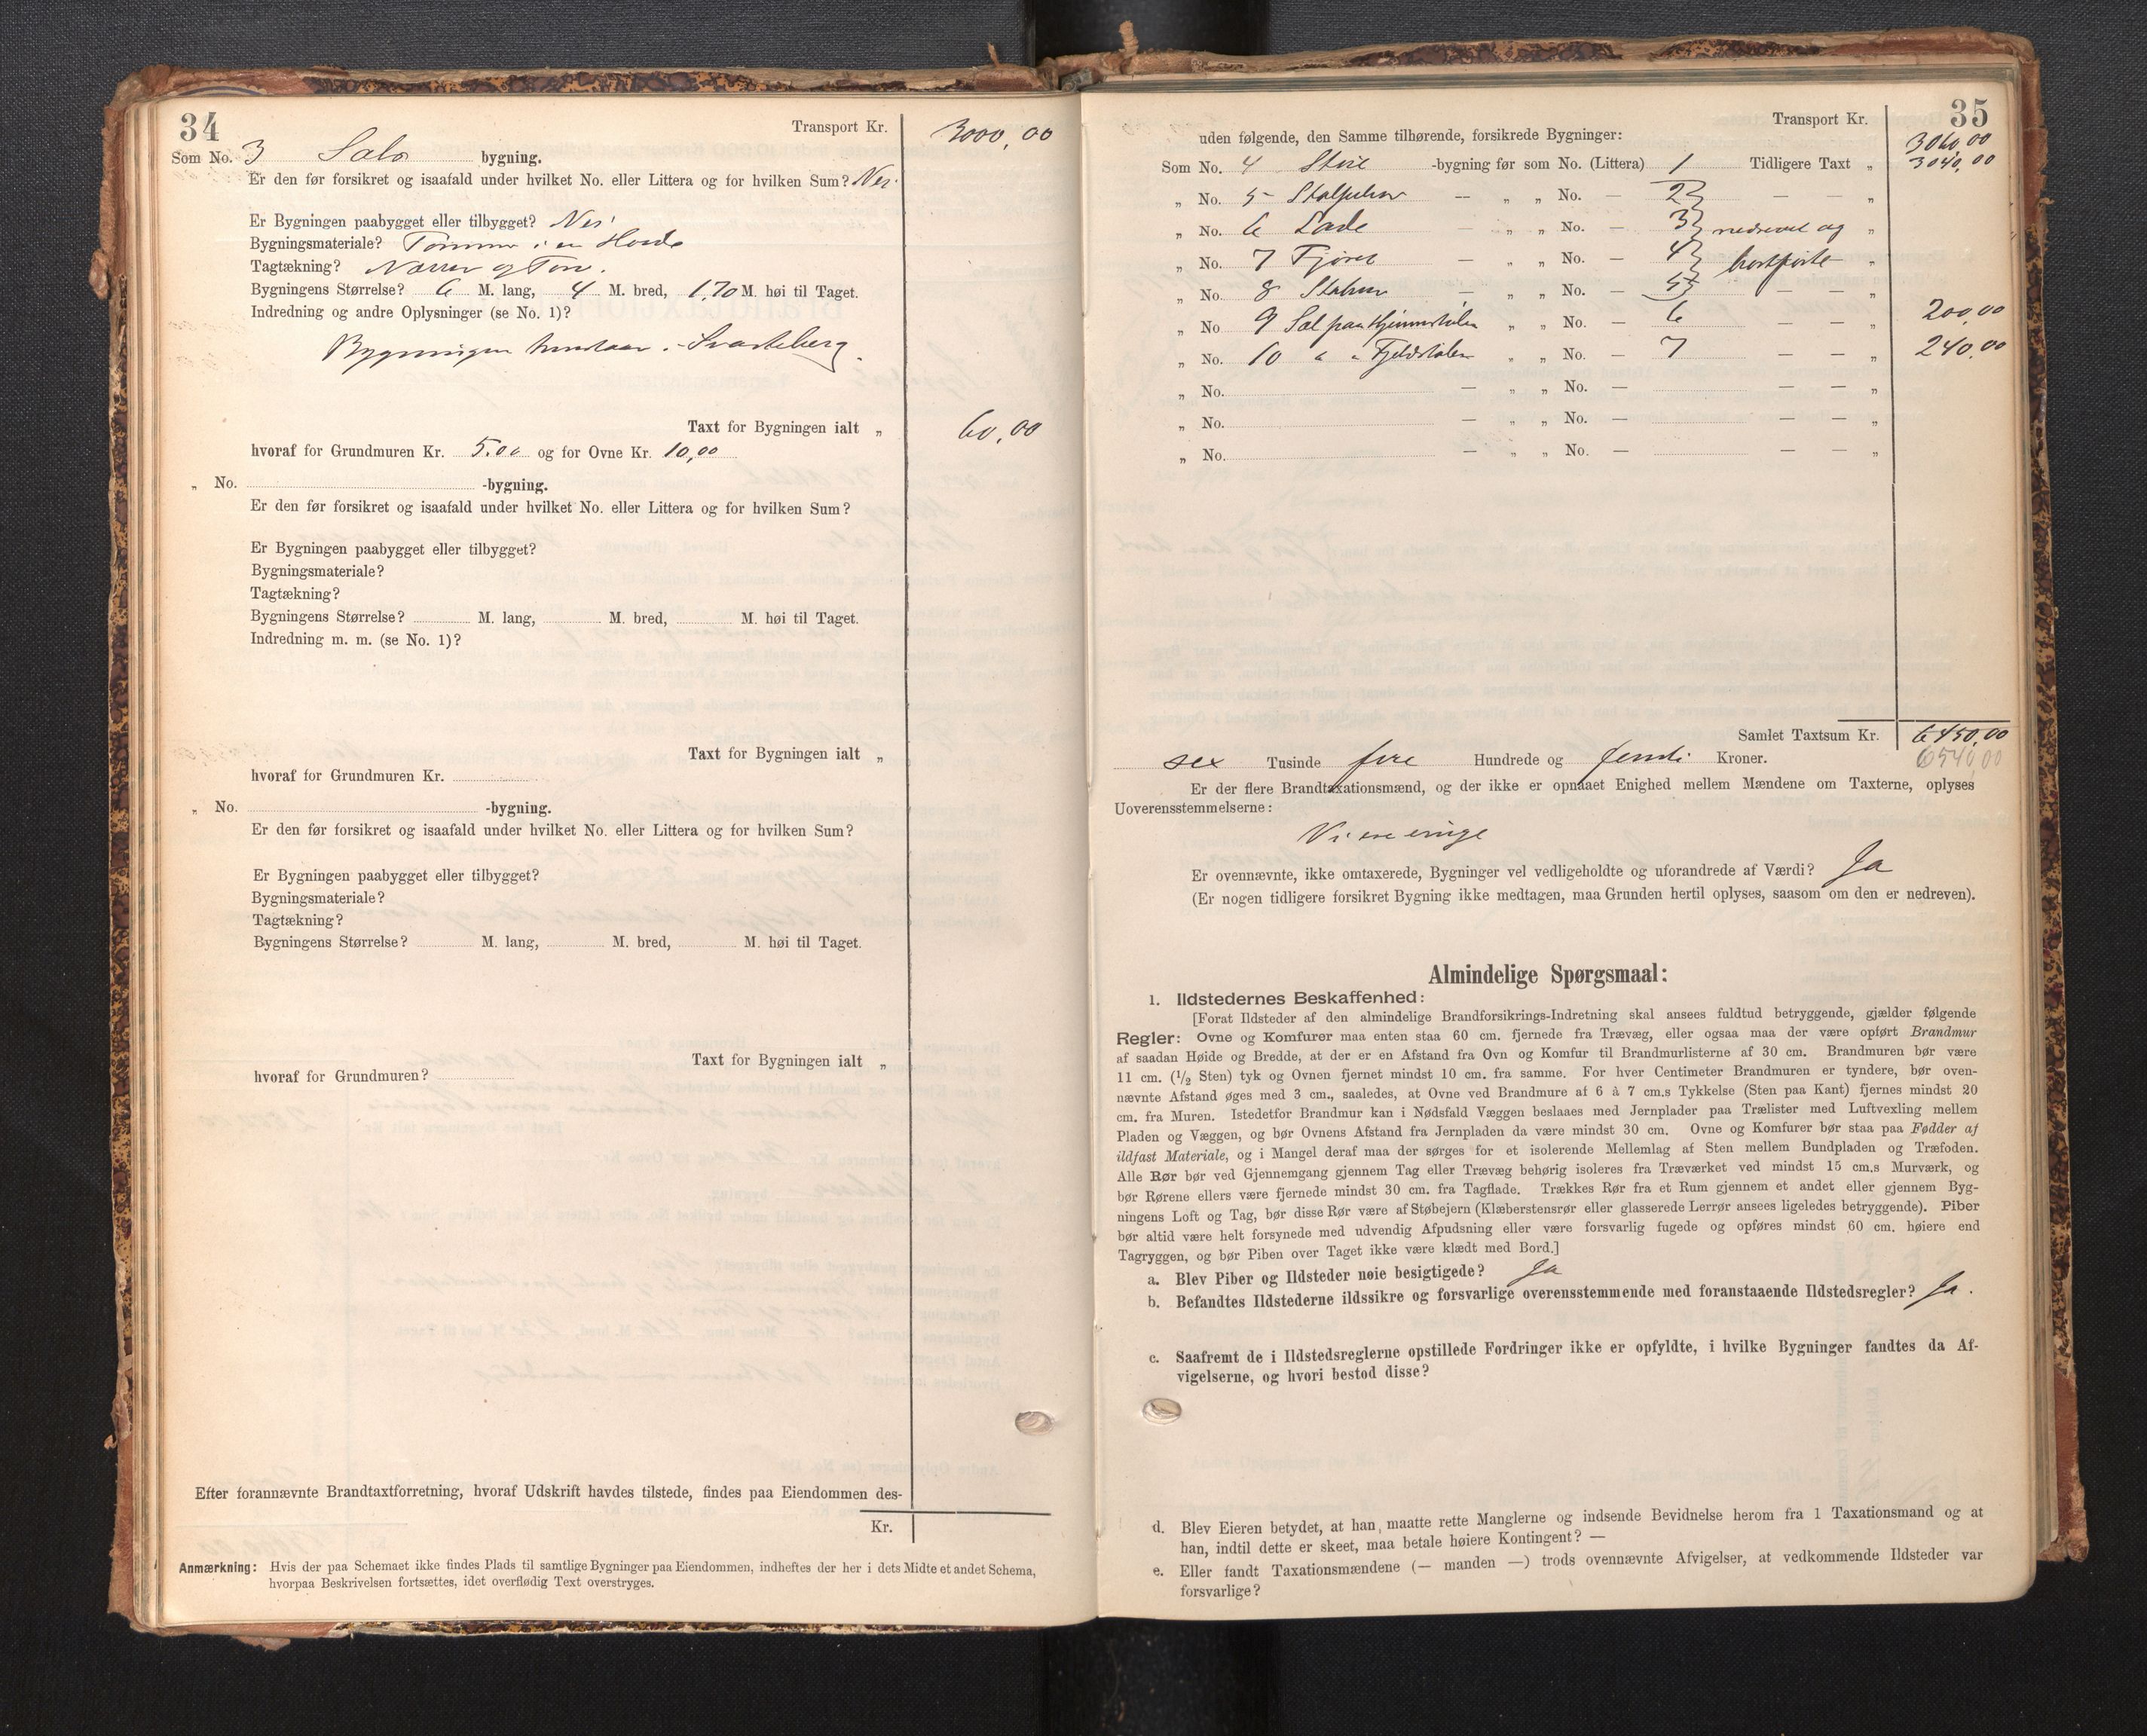 34
Transport Kr. 3000,00
Som No. 3 Sals bygning.
Er den før forsikret og isaafald under hvilket No. eller Littera og for hvilken Sum? Nei.
Er Bygningen paabygget eller tilbygget? Nei
Bygningsmateriale? Tømmer i en Høide
Tagtækning? Næver og Torv.
Bygningens Størrelse? 6 M. lang, 4 M. bred, 1,70 M. høi til Taget.
Indredning og andre Oplysninger (se No. 1)?
Bygningen i Svarteberg.
Taxt for Bygningen ialt „ 60,00
hvoraf for Grundmuren Kr. 5.00 og for Ovne Kr. 10,00
„ No. -bygning.
Er den før forsikret og isaafald under hvilket No. eller Littera og for hvilken Sum?
Er Bygningen paabygget eller tilbygget?
Bygningsmateriale?
Tagtækning?
Bygningens Størrelse? M. lang, M. bred, M. høi til Taget.
Indredning m. m. (se No. 1)?
Taxt for Bygningen ialt „
hvoraf for Grundmuren Kr.
„ No. -bygning.
Er den før forsikret og isaafald under hvilket No. eller Littera og for hvilken Sum?
Er Bygningen paabygget eller tilbygget?
Bygningsmateriale?
Tagtækning?
Bygningens Størrelse? M. lang, M. bred, M. høi til Taget.
Taxt for Bygningen ialt „
hvoraf for Grundmuren?
Efter forannævnte Brandtaxtforretning, hvoraf Udskrift havdes tilstede, findes paa Eiendommen des-
Kr.
Anmærkning: Hvis der paa Schemaet ikke findes Plads til samtlige Bygninger paa Eiendommen, indheftes der her i dets Midte et andet Schema,
hvorpaa Beskrivelsen fortsættes, idet overflødig Text overstryges.
35
Transport Kr. 3060,00
uden følgende, den Samme tilhørende, forsikrede Bygninger:
Som No. 4 Stue -bygning før som No. (Littera) 1 Tidligere Taxt „ 3040,00
„ No. 5 — „ „ No. — 2 — — „
„ No. 6 Lade — „ „ No. — 3 nedrevet og „
„ No. 7 Fjøset — „ „ No. — 4 bortførte „
„ No. 8 Stabur — „ „ No. — 5 — — „
„ No 9 Sæl paa Hjemmestølen „ „ No. — 6 — — „ 200,00
„ No. 10 „ „ Fjeldstølen „ „ No. — 7 — — „ 240,00
„ No. — „ „ No. — — — „
„ No. — „ „ No. — — — „
„ No. — „ „ No. — — — „
Samlet Taxtsum Kr. 6450,00
sex Tusinde fire Hundrede og femti Kroner. 6540,00
Er der flere Brandtaxationsmænd, og der ikke er opnaaet Enighed mellem Mændene om Taxterne, oplyses
Uoverensstemmelserne:
Vi ere enige
Er ovennævnte, ikke omtaxerede, Bygninger vel vedligeholdte og uforandrede af Værdi? Ja
(Er nogen tidligere forsikret Bygning ikke medtagen, maa Grunden hertil oplyses, saasom om den er nedreven).
Almindelige Spørgsmaal:
1. Ildstedernes Beskaffenhed:
[Forat Ildsteder af den almindelige Brandforsikrings-Indretning skal ansees fuldtud betryggende, gjælder følgende
Regler: Ovne og Komfurer maa enten staa 60 cm. fjernede fra Trævæg, eller ogsaa maa der være opført Brandmur
af saadan Høide og Bredde, at der er en Afstand fra Ovn og Komfur til Brandmurlisterne af 30 cm. Brandmuren bør være
11 cm. (1/2 Sten) tyk og Ovnen fjernet mindst 10 cm. fra samme. For hver Centimeter Brandmuren er tyndere, bør oven-
nævnte Afstand øges med 3 cm., saaledes, at Ovne ved Brandmure af 6 à 7 cm.s Tykkelse (Sten paa Kant) fjernes mindst 20
cm. fra Muren. Istedetfor Brandmur kan i Nødsfald Væggen beslaaes med Jernplader paa Trælister med Luftvexling mellem
Pladen og Væggen, og bør Ovnens Afstand fra Jernpladen da være mindst 30 cm. Ovne og Komfurer bør staa paa Fødder af
ildfast Materiale, og i Mangel deraf maa der sørges for et isolerende Mellemlag af Sten mellem Bundpladen og Træfoden.
Alle Rør bør ved Gjennemgang gjennem Tag eller Trævæg behørig isoleres fra Træværket ved mindst 15 cm.s Murværk, og
bør Rørene ellers være fjernede mindst 30 cm. fra Tagflade. Trækkes Rør fra et Rum gjennem et andet eller gjennem Byg-
ningens Loft og Tag, bør disse Rør være af Støbejern (Klæberstensrør eller glasserede Lerrør ansees ligeledes betryggende). Piber
bør altid være helt forsynede med udvendig Afpudsning eller være forsvarlig fugede og opføres mindst 60 cm. høiere end
Tagryggen, og bør Piben over Taget ikke være klædt med Bord.]
a. Blev Piber og Ildsteder nøie besigtigede? Ja
b. Befandtes Ildstederne ildssikre og forsvarlige overensstemmende med foranstaaende Ildstedsregler? Ja.
c. Saafremt de i Ildstedsreglerne opstillede Fordringer ikke er opfyldte, i hvilke Bygninger fandtes da Af-
vigelserne, og hvori bestod disse?
d. Blev Eieren betydet, at han maatte rette Manglerne og indsende Bevidnelse herom fra 1 Taxationsmand og at
han, indtil dette er skeet, maa betale høiere Kontingent? —
e. Eller fandt Taxationsmændene (— manden —) trods ovennævnte Afvigelser, at vedkommende Ildsteder var
forsvarlige?